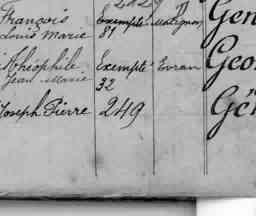 François Exempté Matignon Gen
Louis Marie 81
Théophile Exempté Evran Geo
Jean Marie 32
Joseph Pierre 249 Gé